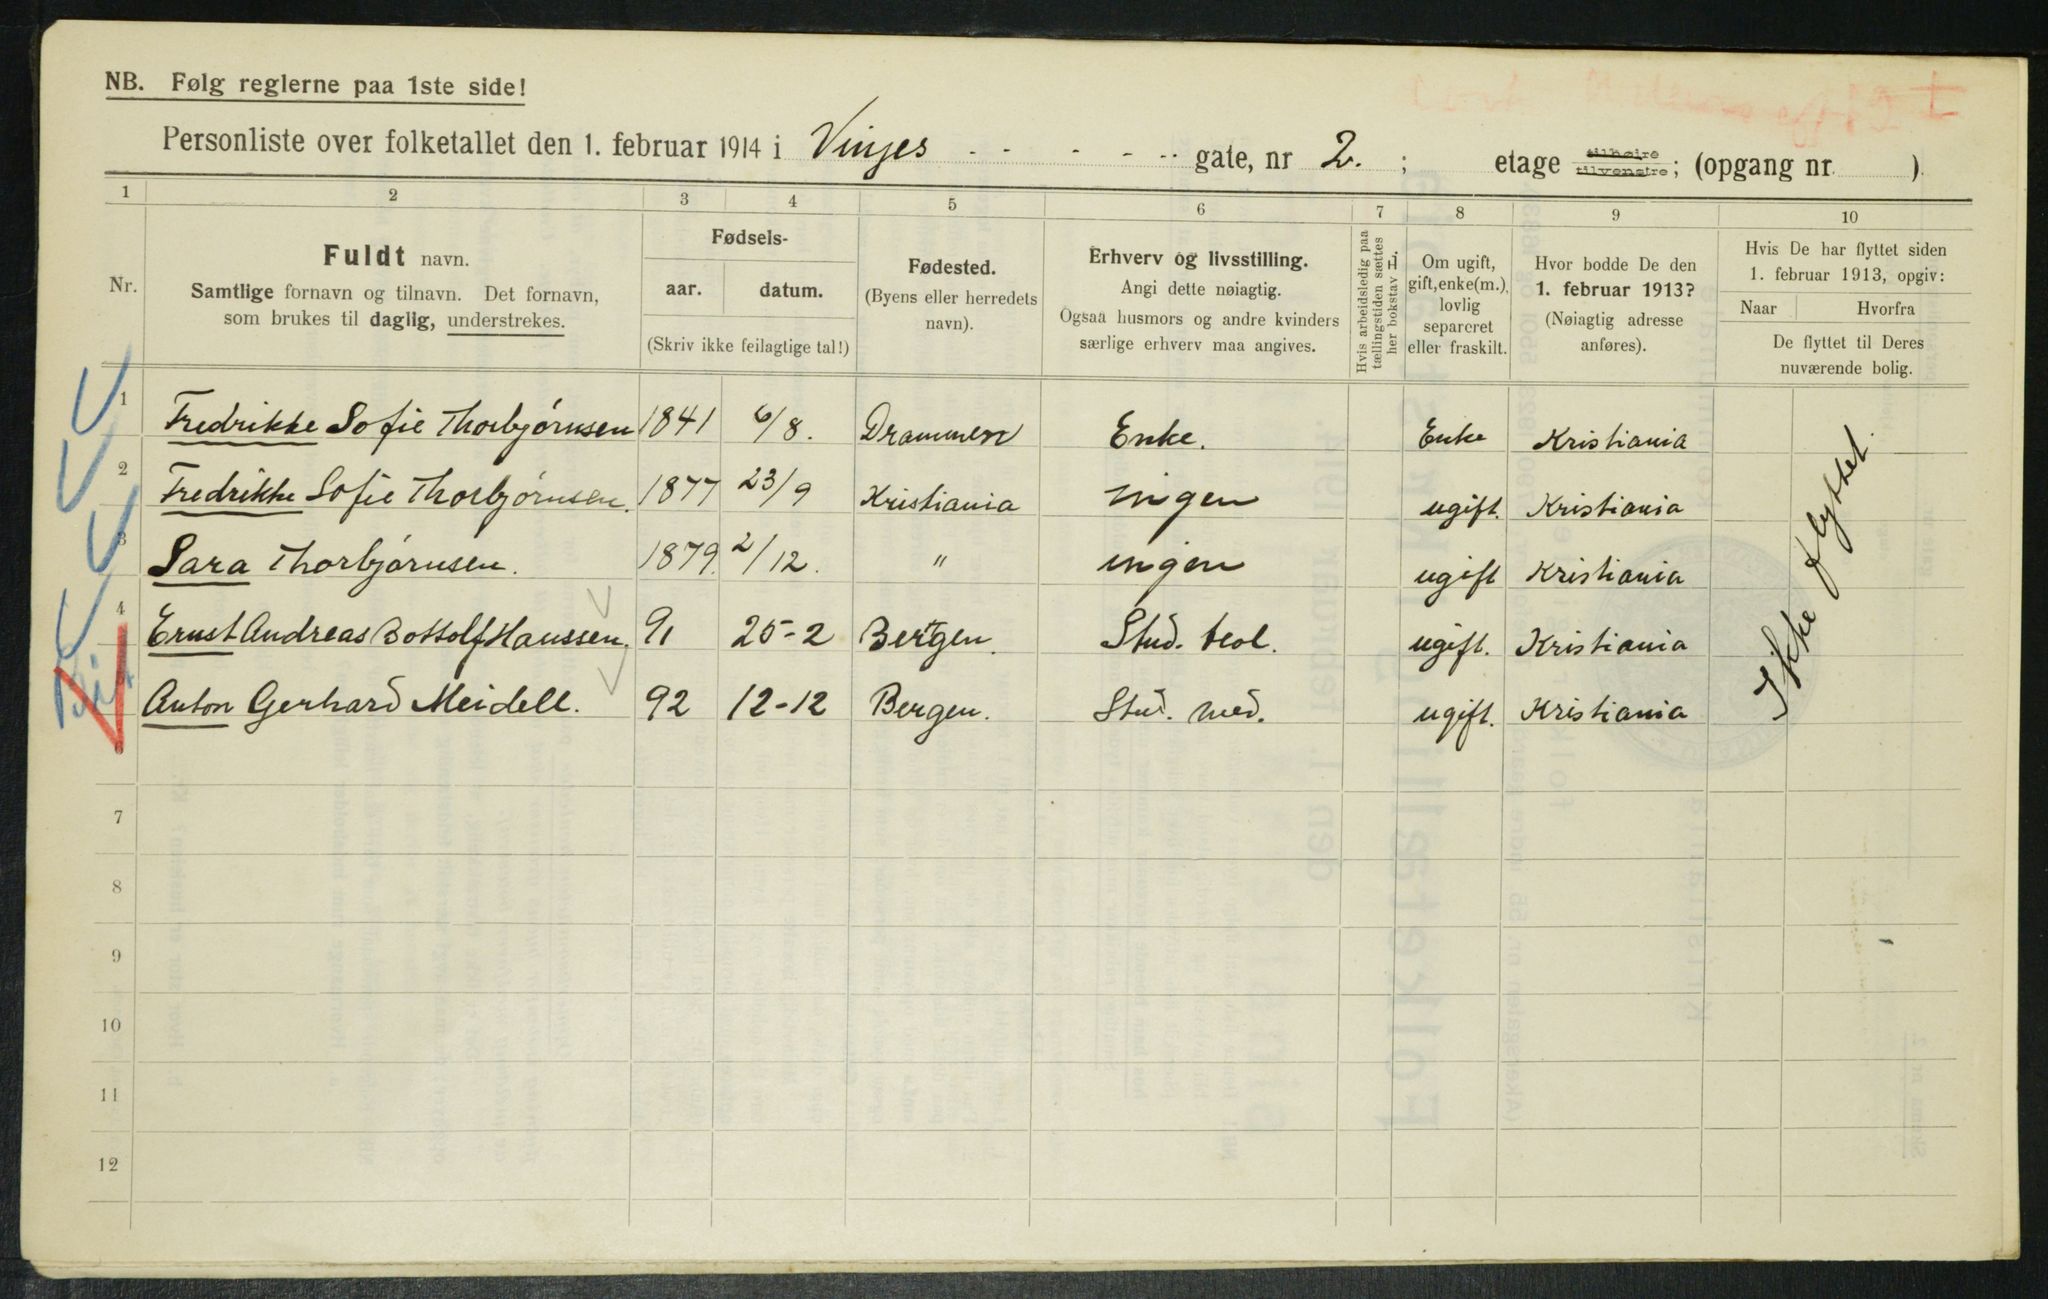 NB. Følg reglerne paa 1ste side!
Personliste over folketallet den 1. februar 1914 i Vinjes gate, nr 2. ; etage tilhøire tilvenstre; (opgang nr. ).
1 2 3 4 5 6 7 8 9 10
Nr.
Fuldt navn.
Samtlige fornavn og tilnavn. Det fornavn,
som brukes til daglig, understrekes.
Fødsels-
aar. datum.
(Skriv ikke feilagtige tal!)
Fødested.
(Byens eller herredets
navn).
Erhverv og livsstilling.
Angi dette nøiagtig.
Ogsaa husmors og andre kvinders
særlige erhverv maa angives.
Hvis arbeidsledig paa
tællingstiden sættes
her bokstav L.
Om ugift,
gift, enke(m.),
lovlig
separeret
eller fraskilt.
Hvor bodde De den
1. februar 1913?
(Nøiagtig adresse
anføres).
Hvis De har flyttet siden
1. februar 1913, opgiv:
Naar Hvorfra
De flyttet til Deres
nuværende bolig.
1 Fredrikke Sofie Thorbjørnsen 1841 6/8. Drammen Enke. Enke Kristiania
2 Fredrikke Sofie Thorbjørnsen. 1877 23/9 Kristiania ingen ugift. Kristiania
3 Sara Thorbjørnsen. 1879. 2/12. " ingen ugift Kristiania
4 Ernst Andreas Bottolf Hanssen. 91 25-2 Bergen. Stud. teol. ugift. Kristiania
Anton Gerhard Meidell. 92 12-12 Bergen. Stud. med. ugift. Kristiania
Ikke flyttet.
6
7
8
9
10
11
12